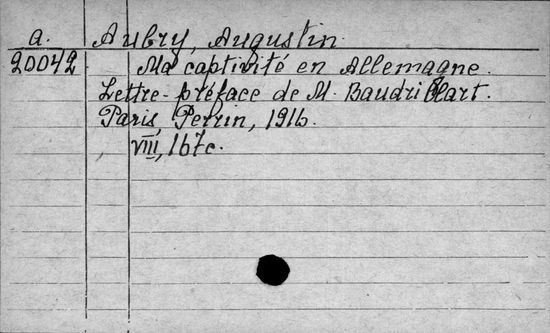 a. Aubry, Augustin.
20042 Ma captivité en Allemagne.
Lettre-préface de M. Baudrillart.
Paris, Perrin, 1916.
VIII, 167c.